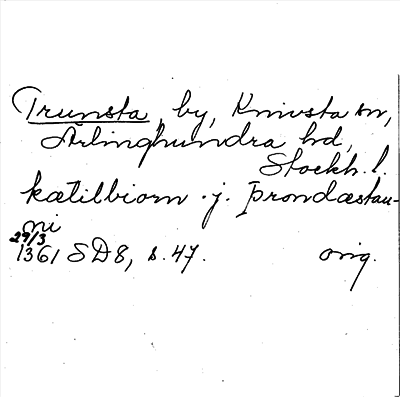 Trunsta, by, Knivsta sn,
Ärlinghundra hd,
Stockh. l.
kætilbiorn . j. þrondæstau-
ni
29/3
1361 SD8, s. 47. orig.